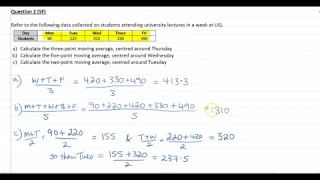 Question 2 (SF)
Refer to the following data collected on students attending university lectures in a week at UCL
Day Mon Tues Wed Thur Fri
Students 90 220 420 330 490
a) Calculate the three-point moving average, centred around Thursday
b) Calculate the five-point moving average, centred around Wednesday
c) Calculate the two-point moving average, centred around Tuesday
a) W+T+F / 3 = 420+330+490 / 3 = 413.3
b) M+T+W+T+F / 5 = 90+220+420+330+490 / 5 = 1310
c) M+T / 2 = 90+220 / 2 = 155 & T+W / 2 = 220+420 / 2 = 320
so then Tues = 155+320 / 2 = 237.5